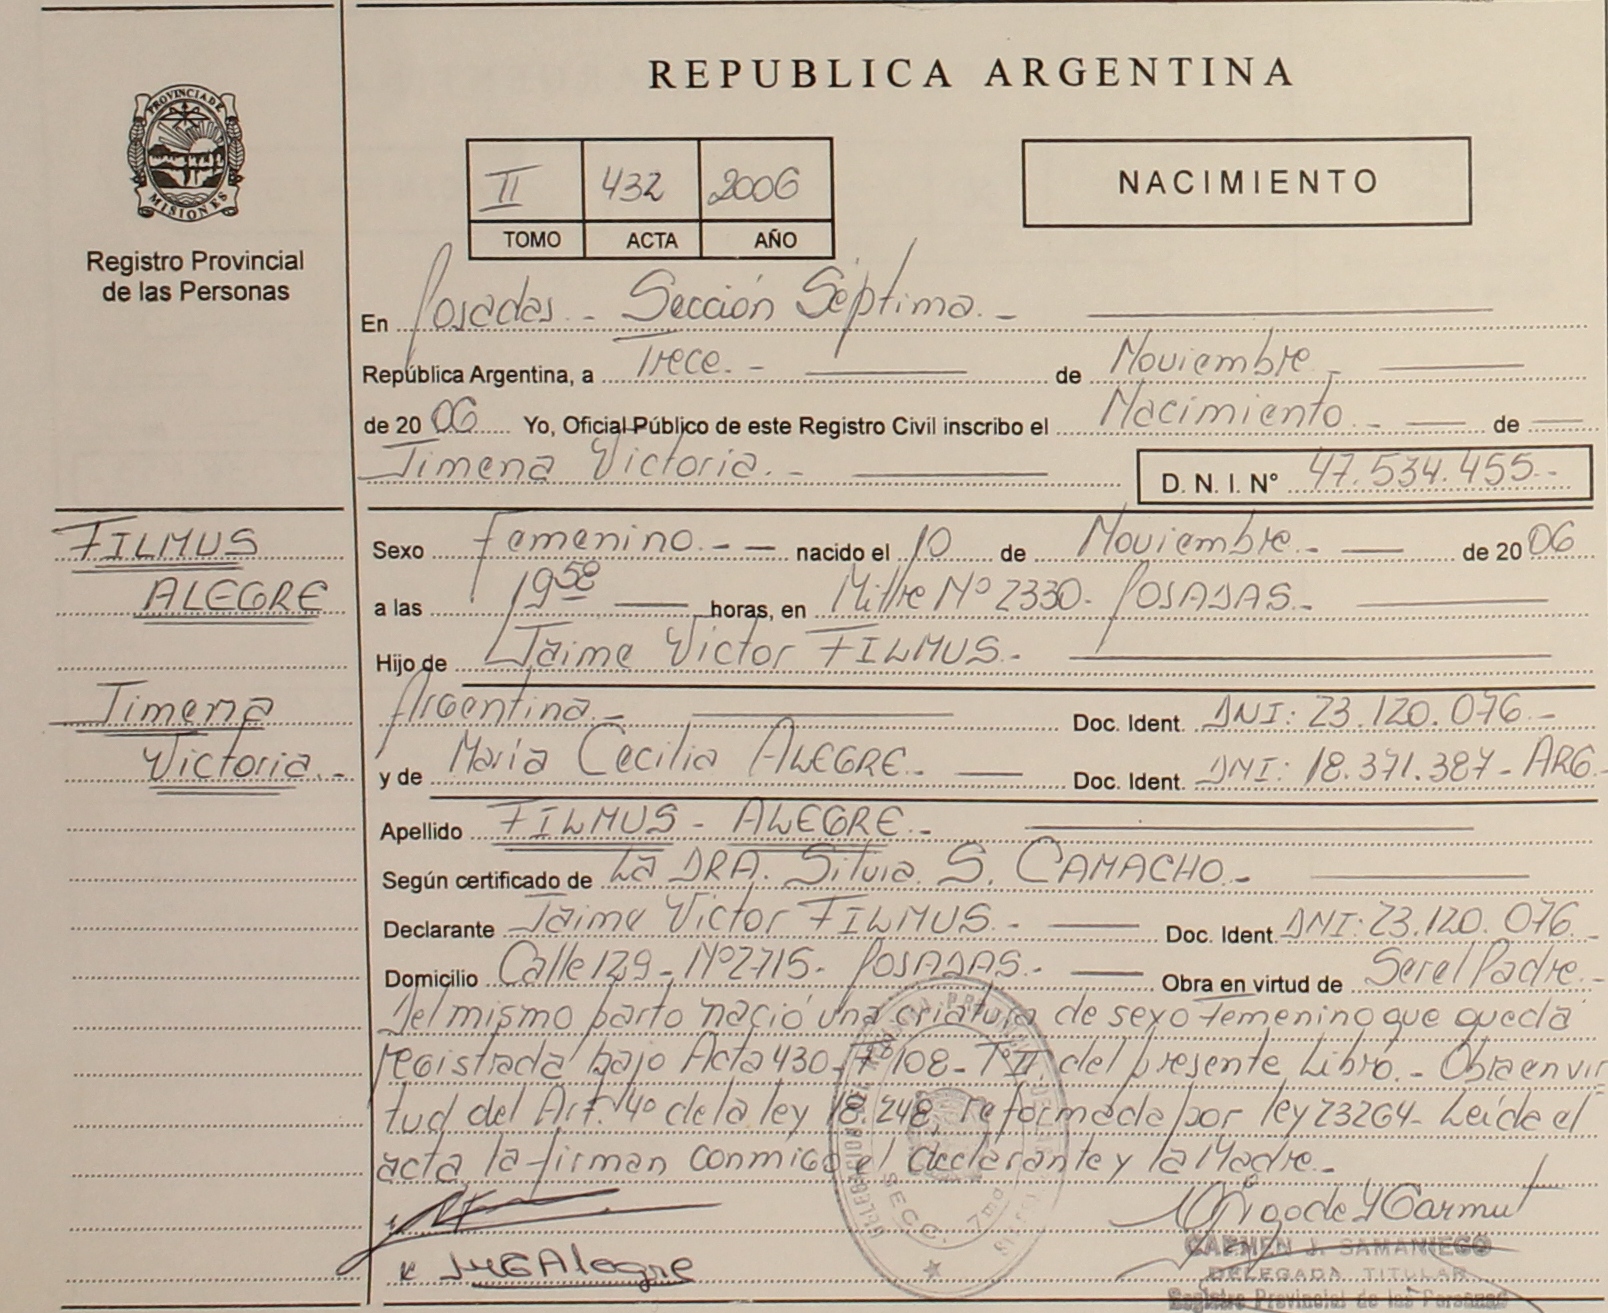 REPUBLICA ARGENTINA
PROVINCIA DE
MISIONES
Registro Provincial
de las Personas
II 432 2006
TOMO ACTA AÑO
NACIMIENTO
En Posadas. - Sección Séptima. -
República Argentina, a Trece. - de Noviembre
de 20 06 Yo, Oficial Público de este Registro Civil inscribo el Nacimiento. - de
Jimena Victoria. - D. N. I. N° 47.534.455.-
FILMUS
ALEGRE
Jimena
Victoria. -
Sexo Femenino. - - nacido el 10 de Noviembre. - de 20 06
a las 19 58 horas, en Mitre Nº 2330- POSADAS. -
Hijo de Jaime Victor FILMUS. -
Argentina. - Doc. Ident. DNI: 23.120.076.-
y de María Cecilia ALEGRE. - Doc. Ident. DNI: 18.371.387- ARG.
Apellido FILMUS - ALEGRE. -
Según certificado de La DRA. Silvia. S. CAMACHO. -
Declarante Jaime Victor FILMUS. - Doc. Ident. DNI: 23.120.076. -
Domicilio Calle 129 - Nº 2715- POSADAS. - Obra en virtud de Ser el Padre. -
Del mismo parto nació una criatura de sexo femenino que queda
registrada bajo Acta 430- Fº 108- Tº II del presente Libro. - Obra en vir
tud del Art. 4º de la ley 18.248, reformada por ley 23264- Leída el
acta, la firman conmigo el declarante y la Madre. -
SECC. 7ma
Alegre
CARMEN J. SAMANIEGO
DELEGADA TITULAR
Registro Provincial de las Personas